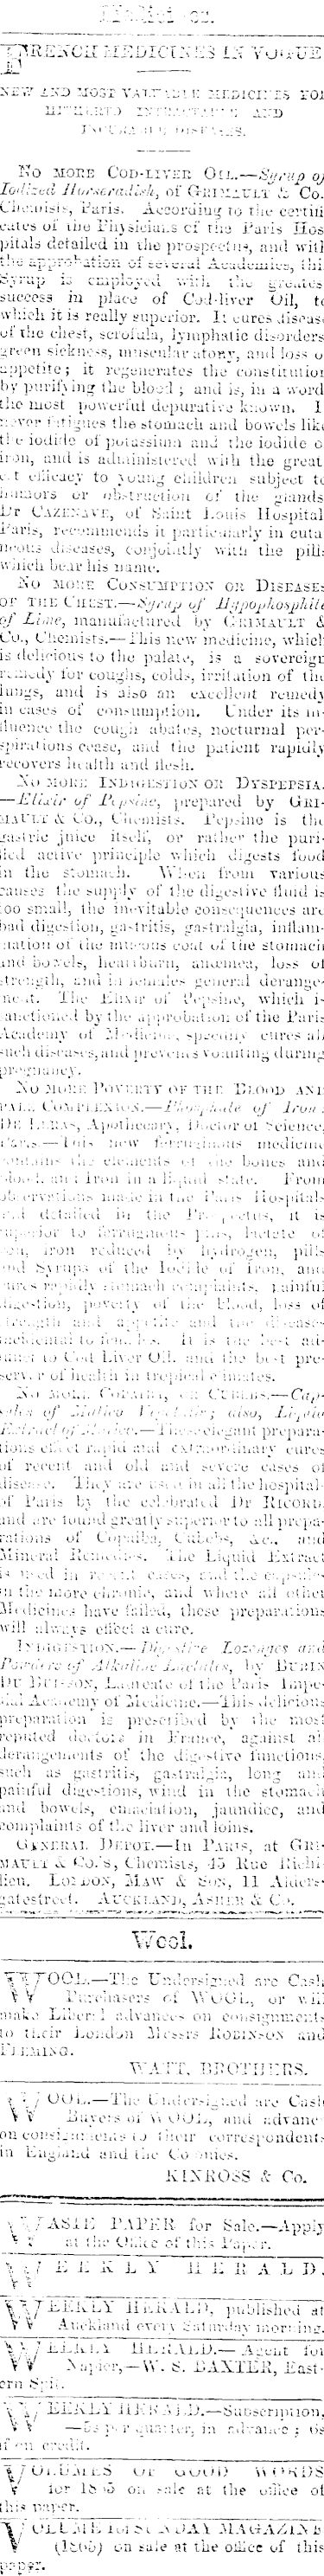 FRENCH MEDICINES IN VOGUE
NEW AND MOST VALUABLE MEDICINES FOR
HITHERTO INTRACTABLE AND
INCURABLE DISEASES.
No more Cod-liver Oil.—Syrup of
Iodized Horseradish, of Grimault & Co.
Chemists, Paris. According to the certifi
cates of the Physicians of the Paris Hos
pitals detailed in the prospectus, and with
the approbation of several Academies, this
Syrup is employed with the greates
success in place of Cod-liver Oil, to
which it is really superior. It cures diseas
of the chest, scrofula, lymphatic disorders
green sickness, muscular atony, and loss o
appetite; it regenerates the constitution
by purifying the blood; and is, in a word
the most powerful depurative known. I
never fatigues the stomach and bowels like
the iodide of potassium and the iodide o
iron, and is administered with the great
est efficacy to young children subject to
humors or obstruction of the glands
Dr Cazenave, of Saint Louis Hospital
Paris, recommends it particularly in cuta
neous diseases, conjointly with the pills
which bear his name.
No more Consumption or Diseases
of the Chest.—Syrup of Hypophosphite
of Lime, manufactured by Grimault &
Co., Chemists.—This new medicine, which
is delicious to the palate, is a sovereign
remedy for coughs, colds, irritation of the
lungs, and is also an excellent remedy
in cases of consumption. Under its in-
fluence the cough abates, nocturnal per-
spirations cease, and the patient rapidly
recovers health and flesh.
No more Indigestion or Dyspepsia.
—Elixir of Pepsine, prepared by Gri-
mault & Co., Chemists. Pepsine is the
gastric juice itself, or rather the puri-
fied active principle which digests food
in the stomach. When from various
causes the supply of the digestive fluid is
too small, the inevitable consequences are
bad digestion, gastritis, gastralgia, inflam-
mation of the mucous coat of the stomach
and bowels, heartburn, anœmea, loss of
strength, and in females general derange-
ment. The Elixir of Pepsine, which is
sanctioned by the approbation of the Paris
Academy of Medicine, speedily cures all
such diseases, and prevents vomiting during
pregnancy.
No more Poverty of the Blood and
Pale Complexion.—Phosphate of Iron
De Leras, Apothecary, Doctor of Science,
Paris.—This new ferruginous medicine
contains the elements of the bones and
blood, and Iron in a liquid state. From
observations made in the Paris Hospitals
and detailed in the Prospectus, it is
superior to ferruginous pills, lactate of
iron, iron reduced by hydrogen, pills
and Syrups of the Iodide of Iron, and
cures rapidly stomach complaints, painful
digestion, poverty of the blood, loss of
strength and appetite and the diseases
incidental to females. It is the best ad-
junct to Cod Liver Oil, and the best pre-
server of health in tropical climates.
No more Copaiba, or Cubebs.—Cap-
sules of Matico Vegetale; also, Liquid
Extract of Matico.—These elegant prepara-
tions effect rapid and extraordinary cures
of recent and old and severe cases of
disease. They are used in all the hospitals
of Paris by the celebrated Dr Ricord,
and are found greatly superior to all prepa-
rations of Copaiba, Cubebs, &c., and
Mineral Remedies. The Liquid Extract
is used in recent cases, and the capsules
in the more chronic, and where all other
Medicines have failed, these preparations
will always effect a cure.
Indigestion.—Digestive Lozenges and
Powders of Alkaline Lactates, by Burin
Du Buisson, Laureate of the Paris Impe
rial Academy of Medicine.—This delicious
preparation is prescribed by the most
reputed doctors in France, against al
derangements of the digestive functions
such as gastritis, gastralgia, long and
painful digestions, wind in the stomach
and bowels, emaciation, jaundice, and
complaints of the liver and loins.
General Depot.—In Paris, at Gri-
mault & Co.'s, Chemists, 45 Rue Richi
lieu. London, Maw & Son, 11 Alders-
gatestreet. Auckland, Asher & Co.
Wool.
WOOL.—The Undersigned are Cash
Purchasers of WOOL, or will
make Liberal advances on consignments
to their London Messrs Robinson and
Fleming.
WATT, BROTHERS.
WOOL.—The Undersigned are Cash
Buyers of WOOL, and advance
on consignments to their correspondents
in England and the Colonies.
KINROSS & Co.
WASTE PAPER for Sale.—Apply
at the Office of this Paper.
WEEKLY HERALD.
WEEKLY HERALD, published at
Auckland every Saturday morning.
WEEKLY HERALD.—Agent for
Napier,—W. S. BAXTER, East-
ern Spit.
WEEKLY HERALD.—Subscription,
—5s per quarter, in advance; 6s
if on credit.
VOLUMES OF GOOD WORDS
for 1865 on sale at the office of
this paper.
VOLUME 1st SUNDAY MAGAZINE
(1865) on sale at the office of this
paper.